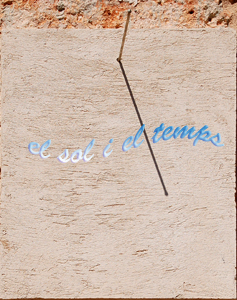 el sol i el temps